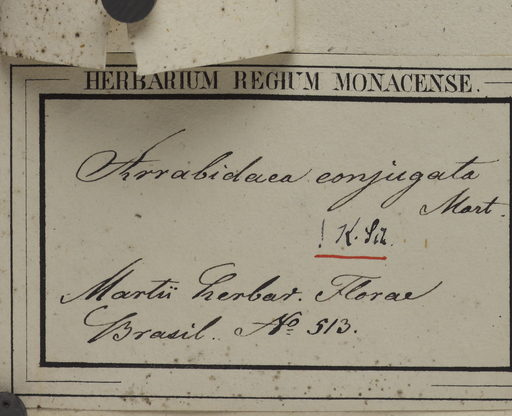 HERBARIUM REGIUM MONACENSE.
Arrabidaea conjugata
Mart.
! K. Sch.
Martii herbar. Florae
Brasil. No 513.